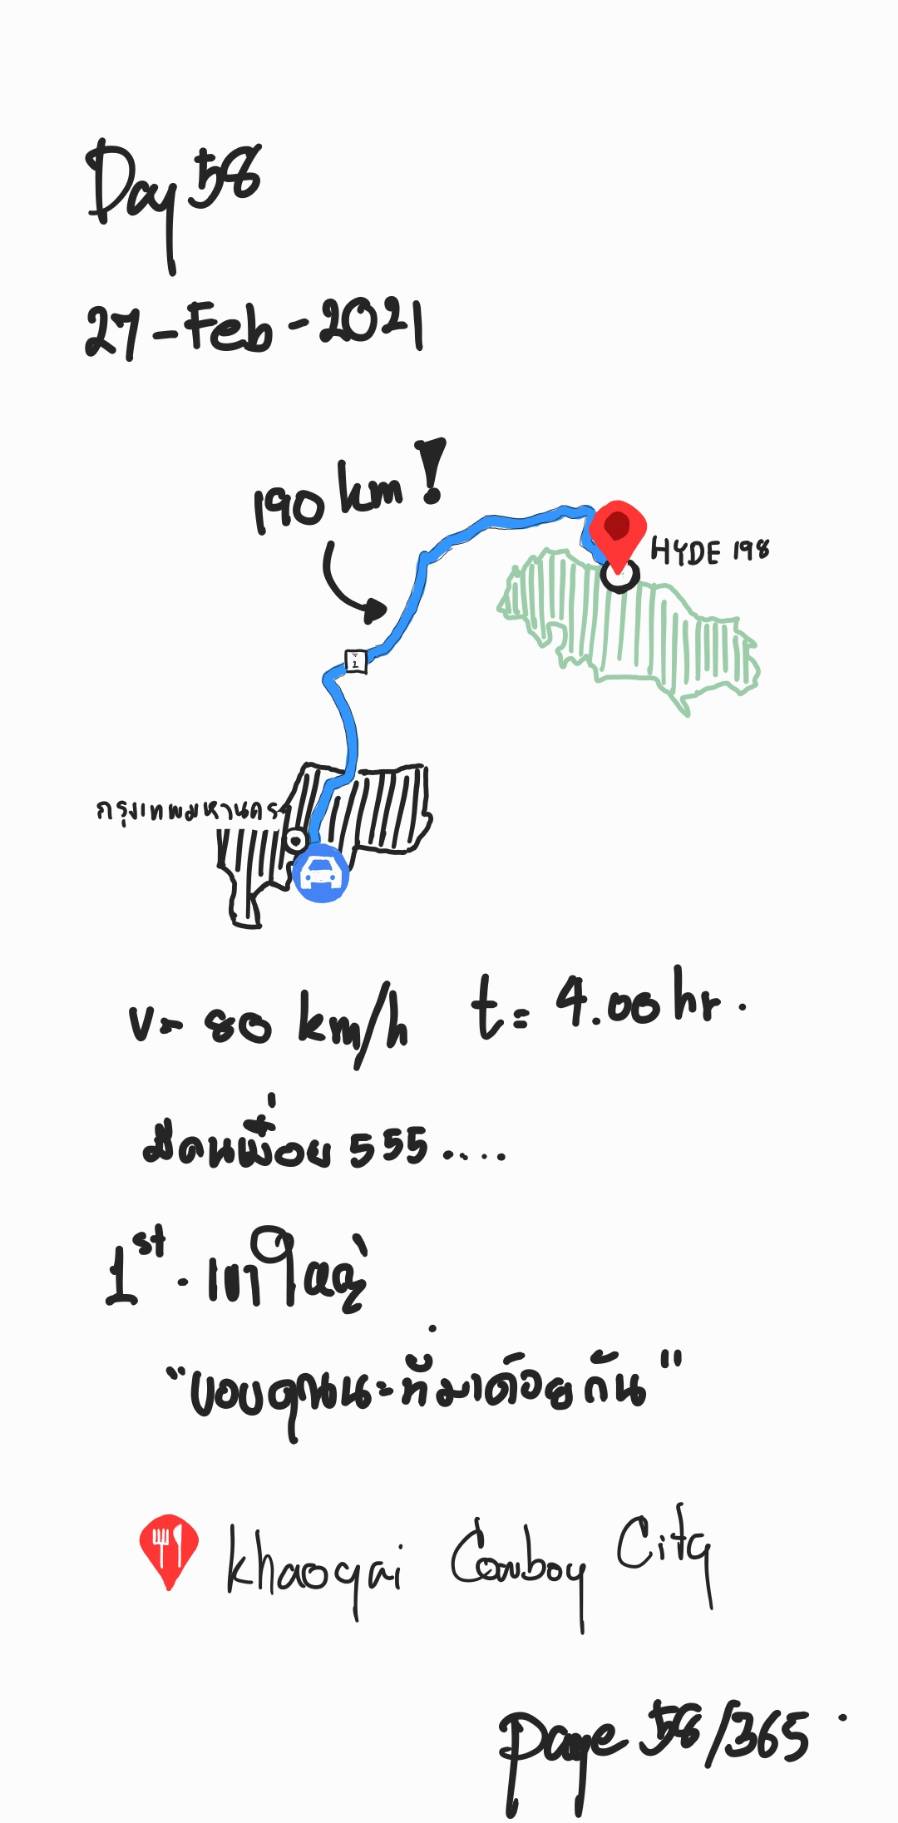 Day 58
27-Feb-2021
190 km!
HYDE 198
1
กรุงเทพมหานคร
v= 80 km/h t= 4.00 hr.
มีคนเมื่อย 555....
1st. เขาใหญ่
"ขอบคุณนะที่มาด้วยกัน"
Khaoyai Cowboy City
page 58/365